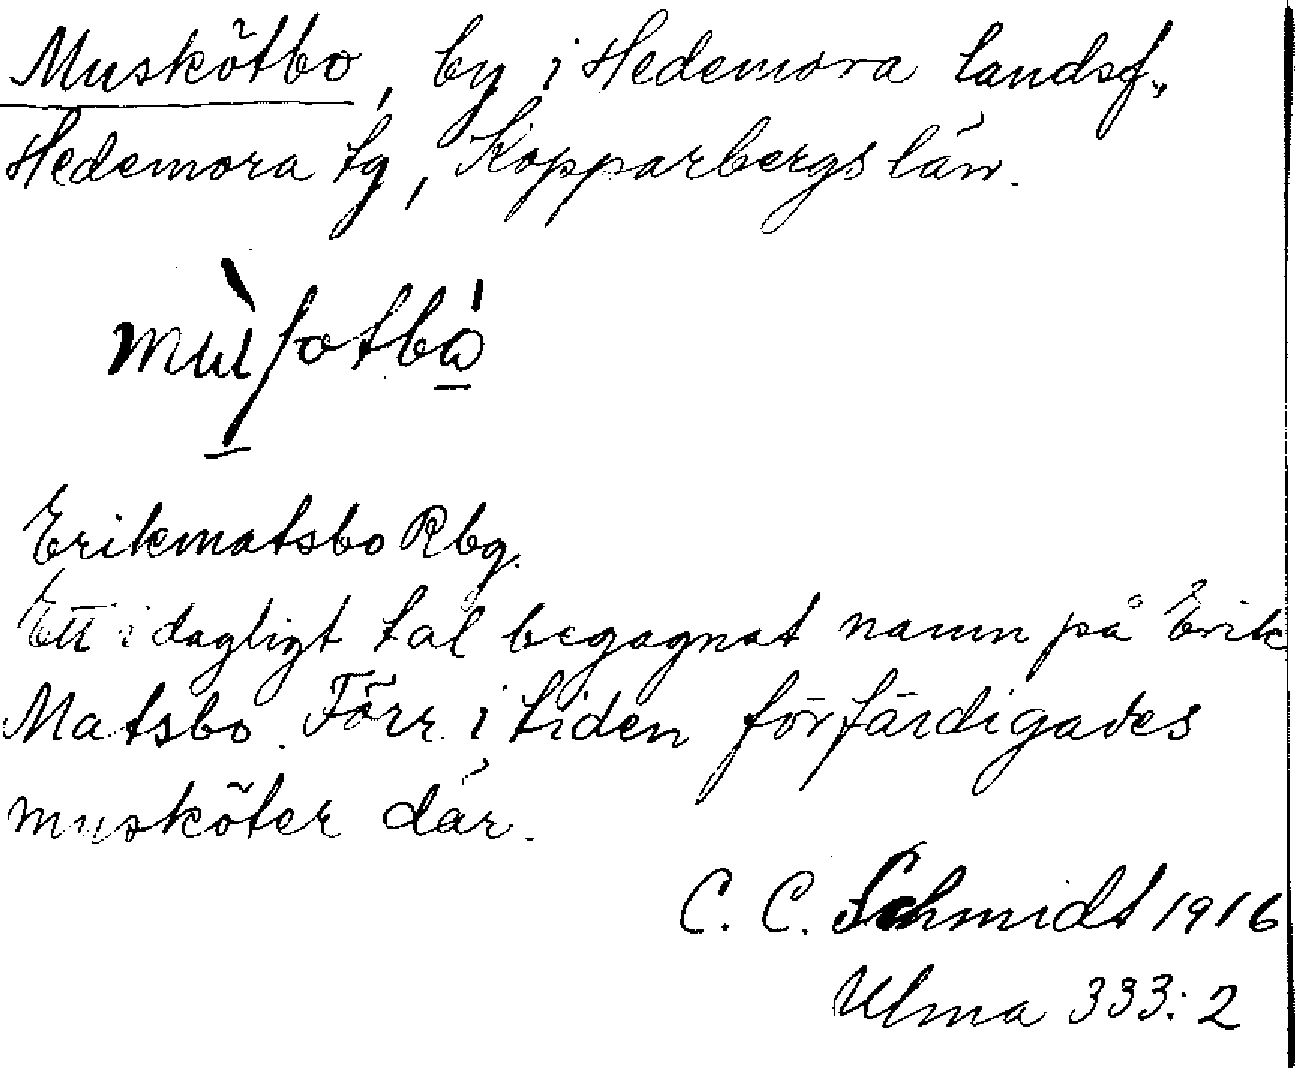 Muskötbo, by i Hedemora landsf.,
Hedemora tg, Kopparbergs län.
Erikmatsbo Rbg.
Ett i dagligt tal begagnat namn på Erik
Matsbo. Förr i tiden förfärdigades
musköter där.
C. C. Schmidt 1916
Ulma 333:2